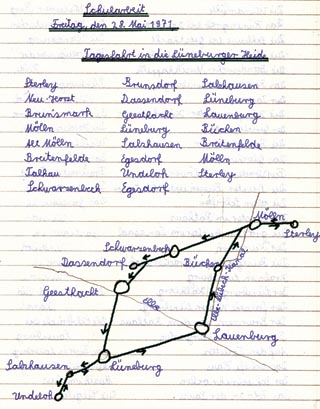 Schularbeit
Freitag, den 28. Mai 1971
Tagesfahrt in die Lüneburger Heide
Sterley Brunsdorf Salzhausen
Neu-Horst Dassendorf Lüneburg
Brunsmark Geesthacht Lauenburg
Mölln Lüneburg Büchen
Alt Mölln Salzhausen Breitenfelde
Breitenfelde Egesdorf Mölln
Talkau Undeloh Sterley
Schwarzenbeck Egesdorf
Mölln
Sterley
Schwarzenbeck
Dassendorf
Büchen
Elbe-Lübeck-Kanal
Geesthacht
Elbe
Lauenburg
Salzhausen
Lüneburg
Undeloh